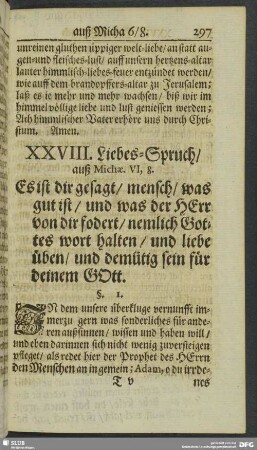 auß Micha 6/8. 297
unreinen gluthen üppiger welt-liebe/ an statt au-
gen-und fleisches-lust/ auff unsern hertzens-altar
lauter himmlisch-liebes-feuer entzündet werden/
wie auff dem brandopffers-altar zu Jerusalem;
laß es ie mehr und mehr wachsen/ biß wir im
himmel völlige liebe und lust geniessen werden;
Ach himmlischer Vater erhöre uns durch Chri-
stum. Amen.
XXVIII. Liebes-Spruch/
auß Michæ. VI, 8.
Es ist dir gesagt/ mensch/ was
gut ist/ und was der HErr
von dir fodert/ nemlich Got-
tes wort halten/ und liebe
üben/ und demütig sein für
deinem GOtt.
§. 1.
IN dem unsere überkluge vernunfft im-
merzu gern was sonderliches für ande-
ren außsinnen/ wissen und haben will/
und eben darinnen sich nicht wenig zuversteigen
pfleget/ als redet hier der Prophet des HErrn
den Menschen an in gemein; Adam, o du irrde-
T v nes
SLUB